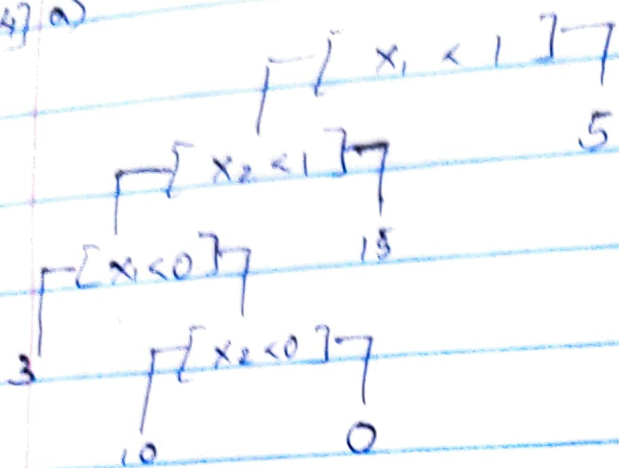 4) a)
[ x₁ < 1 ]
5
[ x₂ < 1 ]
15
[ x₁ < 0 ]
3
[ x₂ < 0 ]
10 0